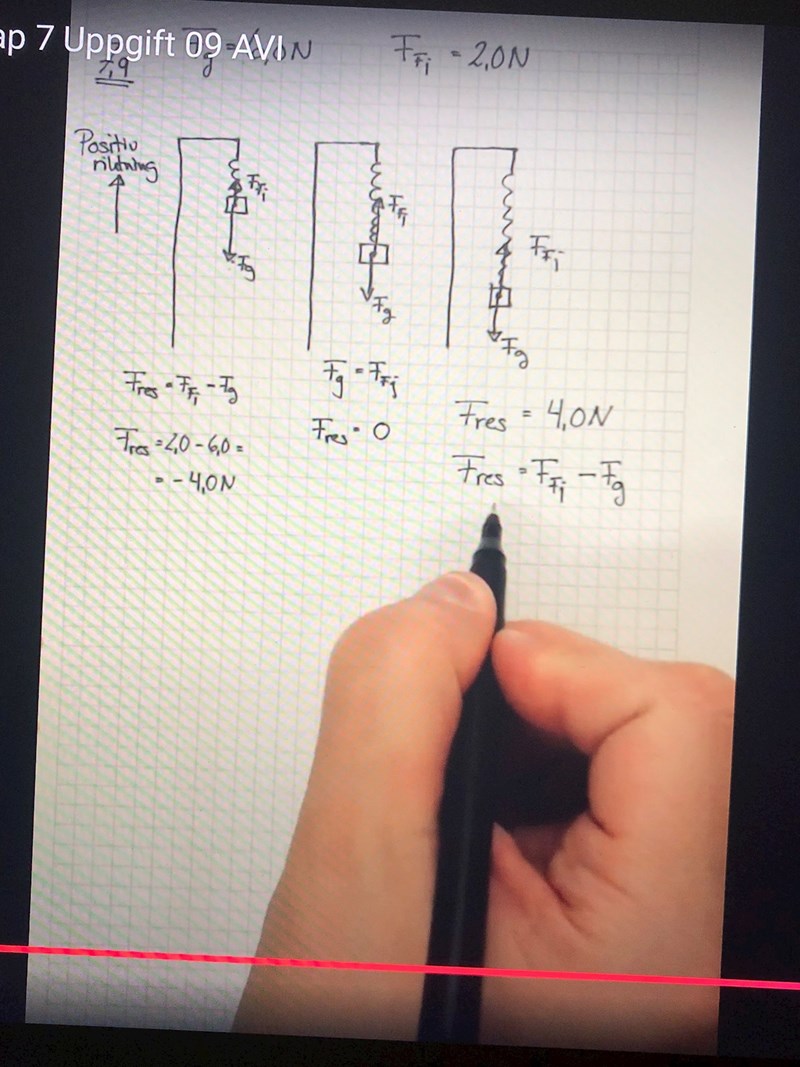 ap 7 Uppgift 09 AVI
7,9
Fg = 6,0N
F_Fj = 2,0N
Positiv
riktning
F_Fj
Fg
F_Fj
Fg
F_Fj
Fg
Fres = F_Fj - Fg
Fres = 2,0 - 6,0 =
= - 4,0N
Fg = F_Fj
Fres = 0
Fres = 4,0N
Fres = F_Fj - Fg